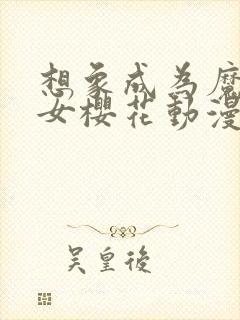 想象成为魔
女樱花動漫
吴皇後